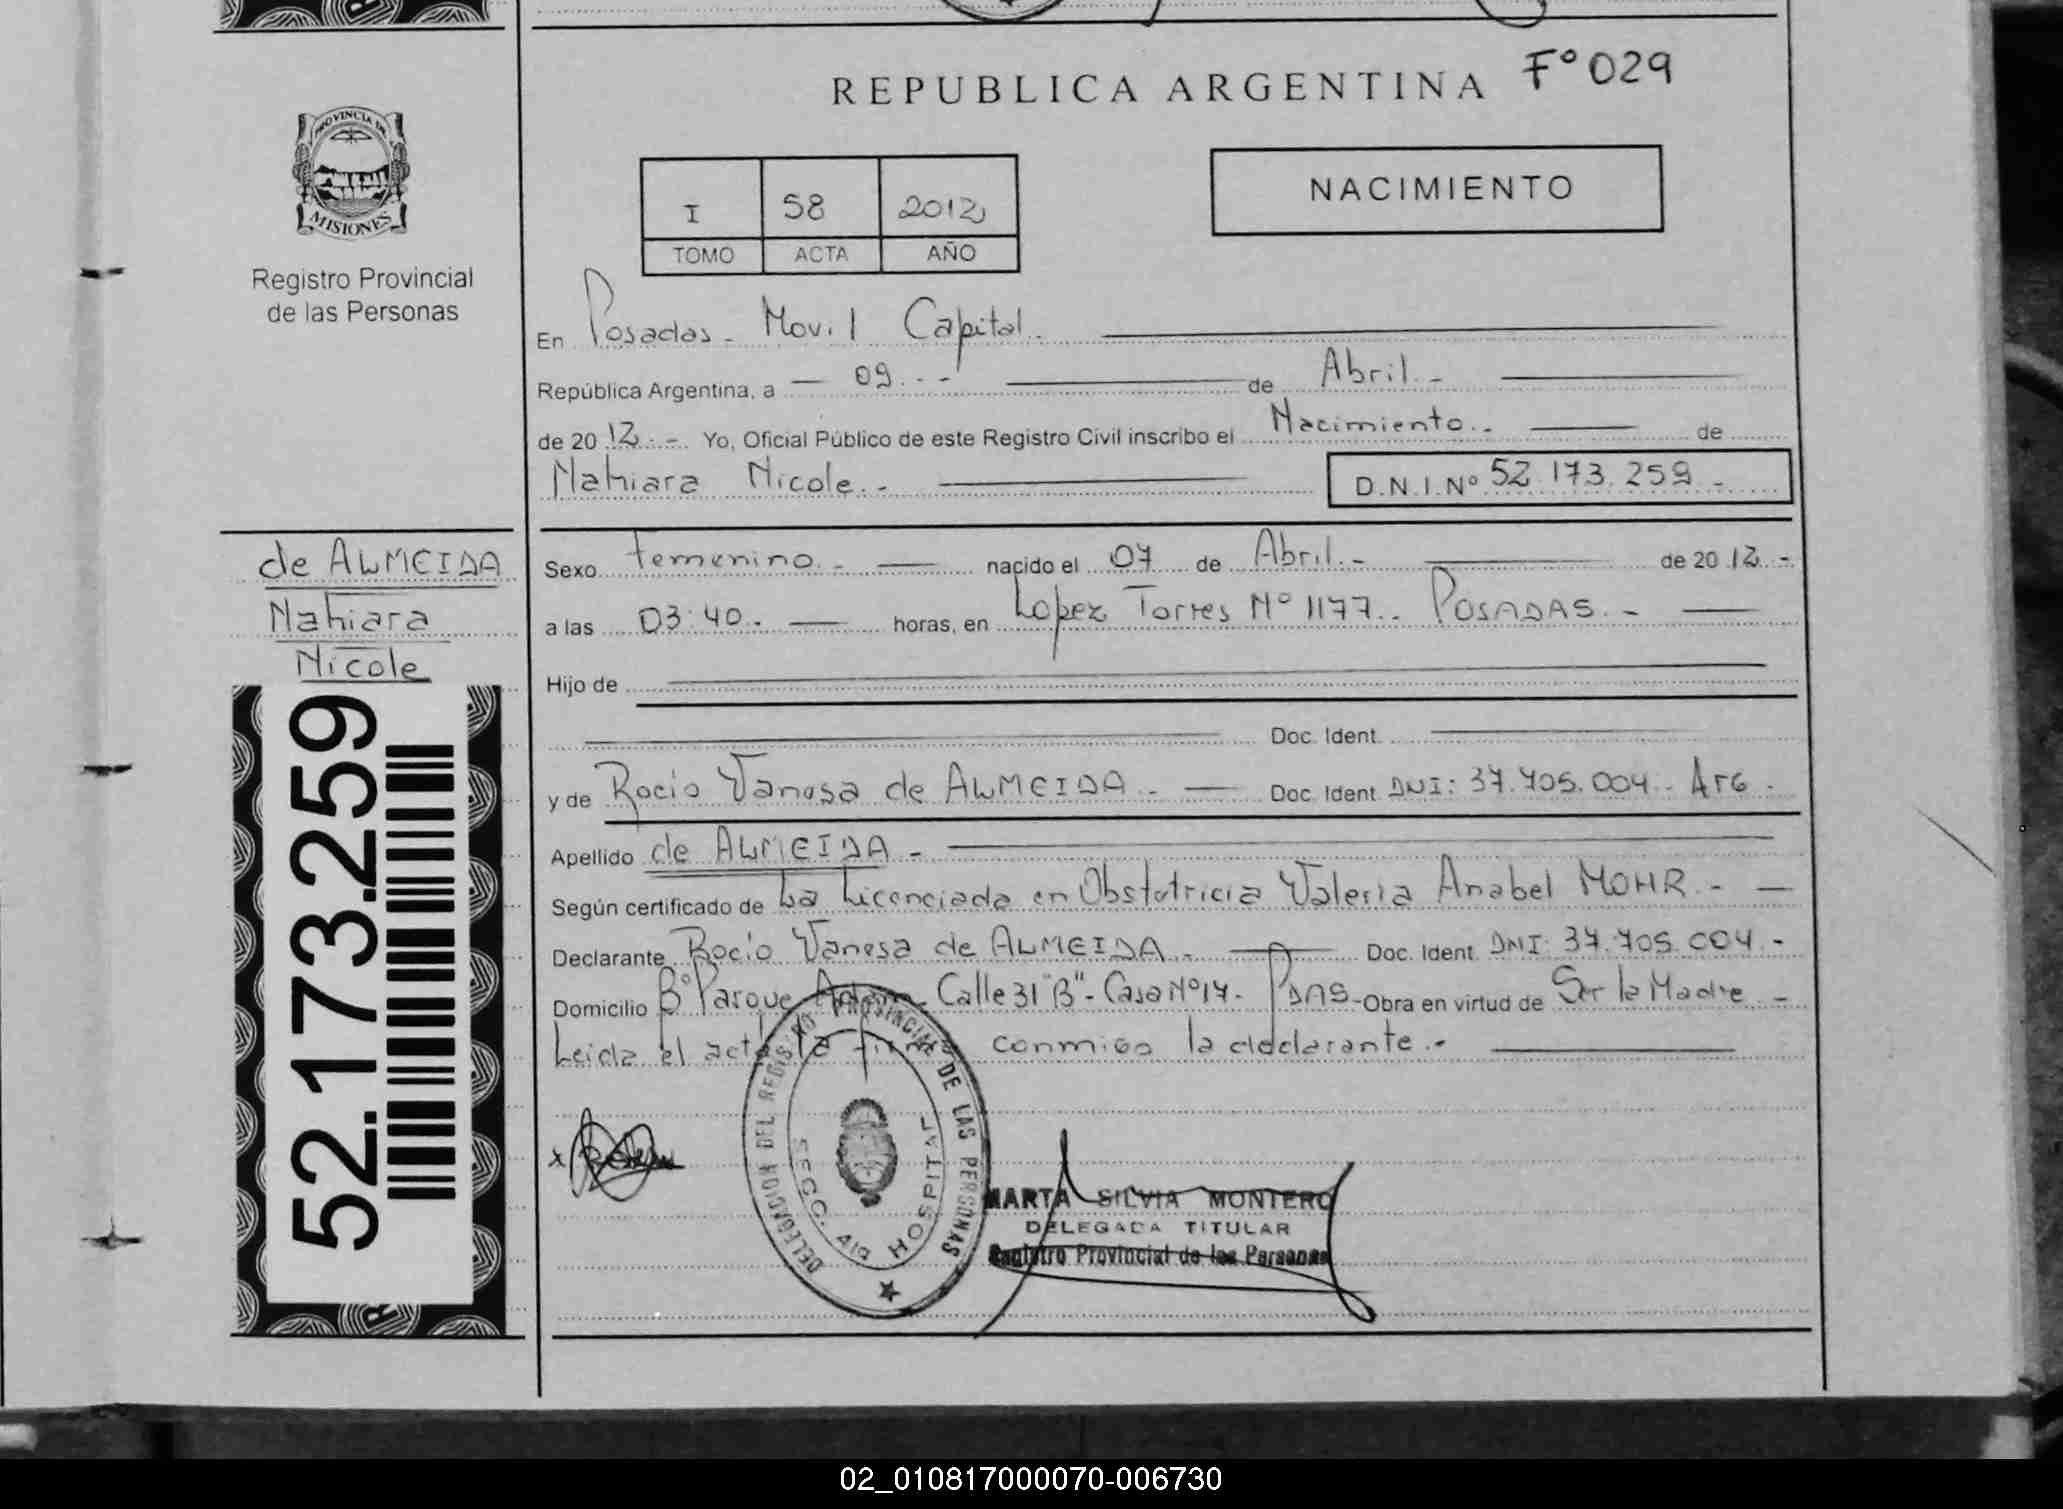 REPUBLICA ARGENTINA F° 029
PROVINCIA DE
MISIONES
Registro Provincial
de las Personas
I 58 2012
TOMO ACTA AÑO
NACIMIENTO
En Posadas - Movil Capital.
República Argentina, a 09 de Abril
de 2012 Yo, Oficial Público de este Registro Civil inscribo el Nacimiento de
Nahiara Nicole. D.N.I.Nº 52.173.259
de ALMEIDA
Nahiara
Nicole
52.173.259
Sexo Femenino nacido el 07 de Abril de 2012
a las 03:40 horas, en Lopez Torres Nº 1177. POSADAS.
Hijo de
Doc. Ident.
y de Rocio Vanesa de ALMEIDA Doc. Ident. DNI: 37.705.004 - Arg.
Apellido de ALMEIDA
Según certificado de La Licenciada en Obstetricia Valeria Anabel MOHR.
Declarante Rocio Vanesa de ALMEIDA Doc. Ident. DNI: 37.705.004.
Domicilio Bº Parque Calle 31 "B" - Casa Nº 17 - PDAS - Obra en virtud de Ser la Madre
Leida el acta la firma conmigo la declarante.
DELEGACION DEL REGISTRO PROVINCIAL DE LAS PERSONAS
SECC. HOSPITAL
MARTA SILVIA MONTERO
DELEGADA TITULAR
Registro Provincial de las Personas
02_010817000070-006730